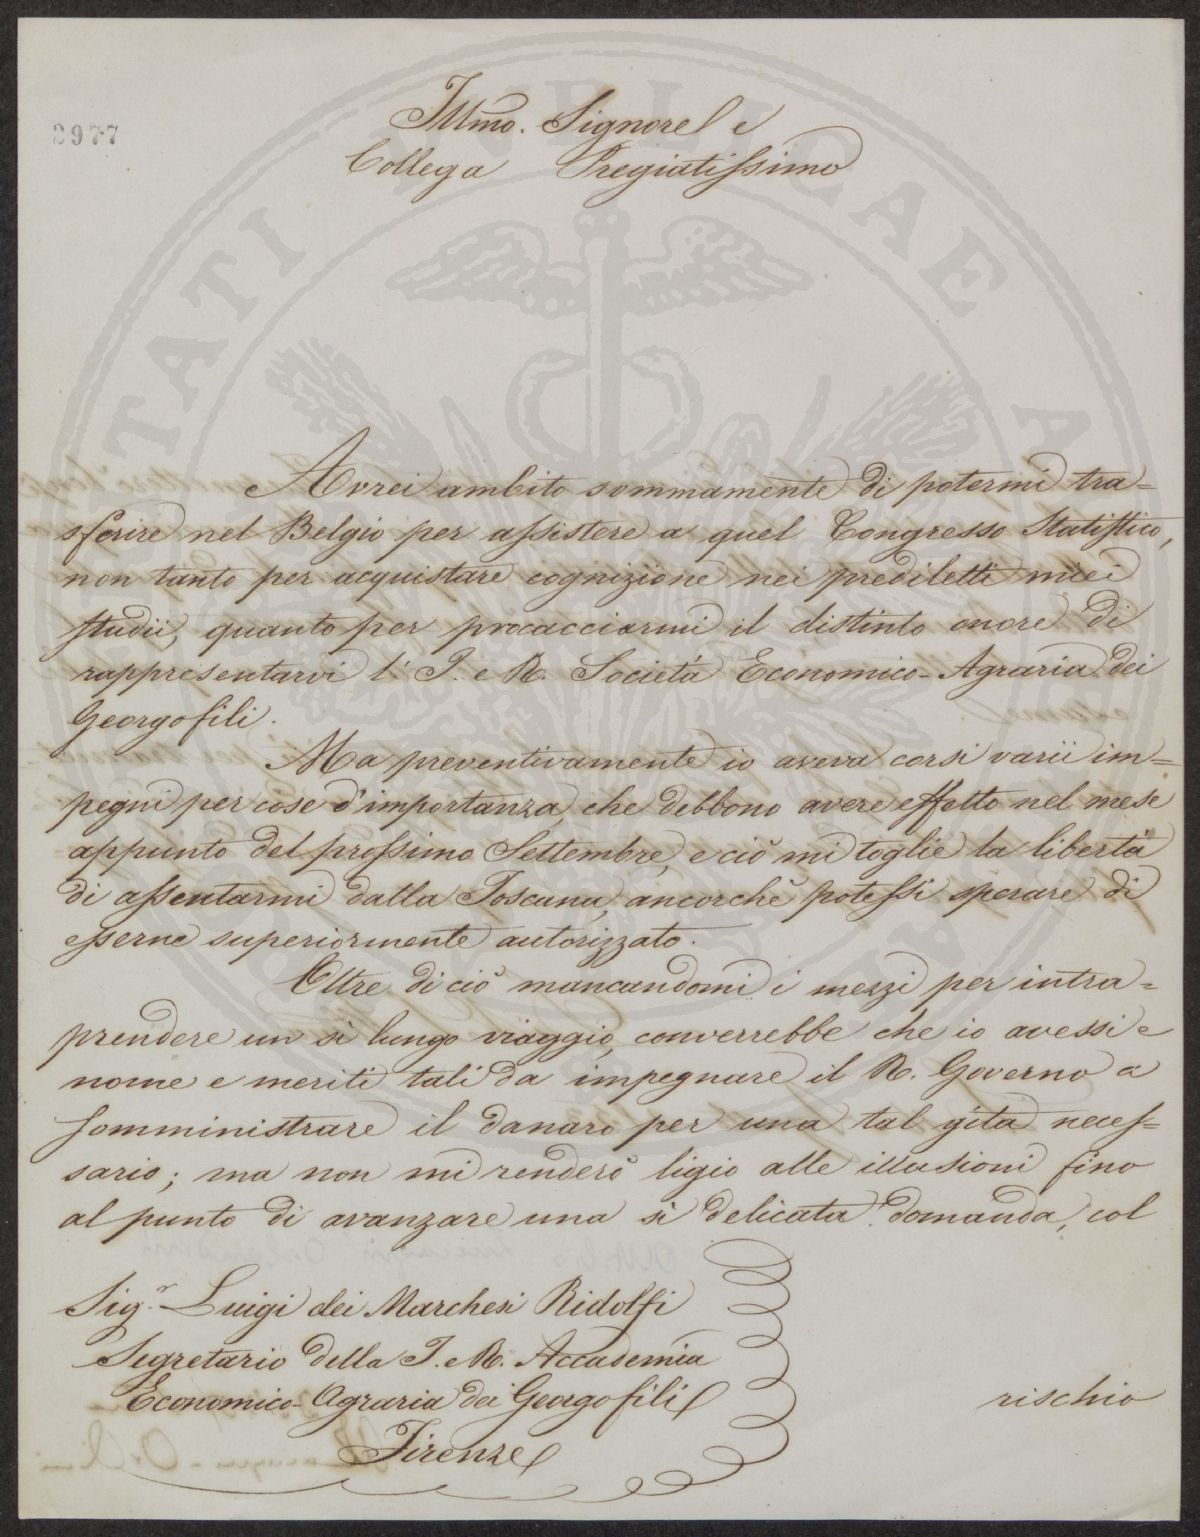 2977
Illmo. Signore e
Collega Pregiatissimo
Avrei ambito sommamente di potermi tra=
sferire nel Belgio per assistere a quel Congresso Statistico,
non tanto per acquistare cognizione nei prediletti miei
studii, quanto per procacciarmi il distinto onore di
rappresentarvi l'I. e R. Società Economico-Agraria dei
Georgofili.
Ma preventivamente io aveva corsi varii im=
pegni per cose d'importanza, che debbono avere effetto nel mese
appunto del prossimo Settembre, e ciò mi toglie la libertà
di assentarmi dalla Toscana, ancorchè potessi sperare di
esserne superiormente autorizzato.
Oltre di ciò mancandomi i mezzi per intra=
prendere un sì lungo viaggio, converrebbe che io avessi e
nome e meriti tali da impegnare il R. Governo a
somministrare il danaro per una tal gita neces=
sario; ma non mi renderò ligio alle illusioni fino
al punto di avanzare una sì delicata domanda, col
Sig.r Luigi dei Marchesi Ridolfi
Segretario della I. e R. Accademia
Economico-Agraria dei Georgofili
Firenze
rischio